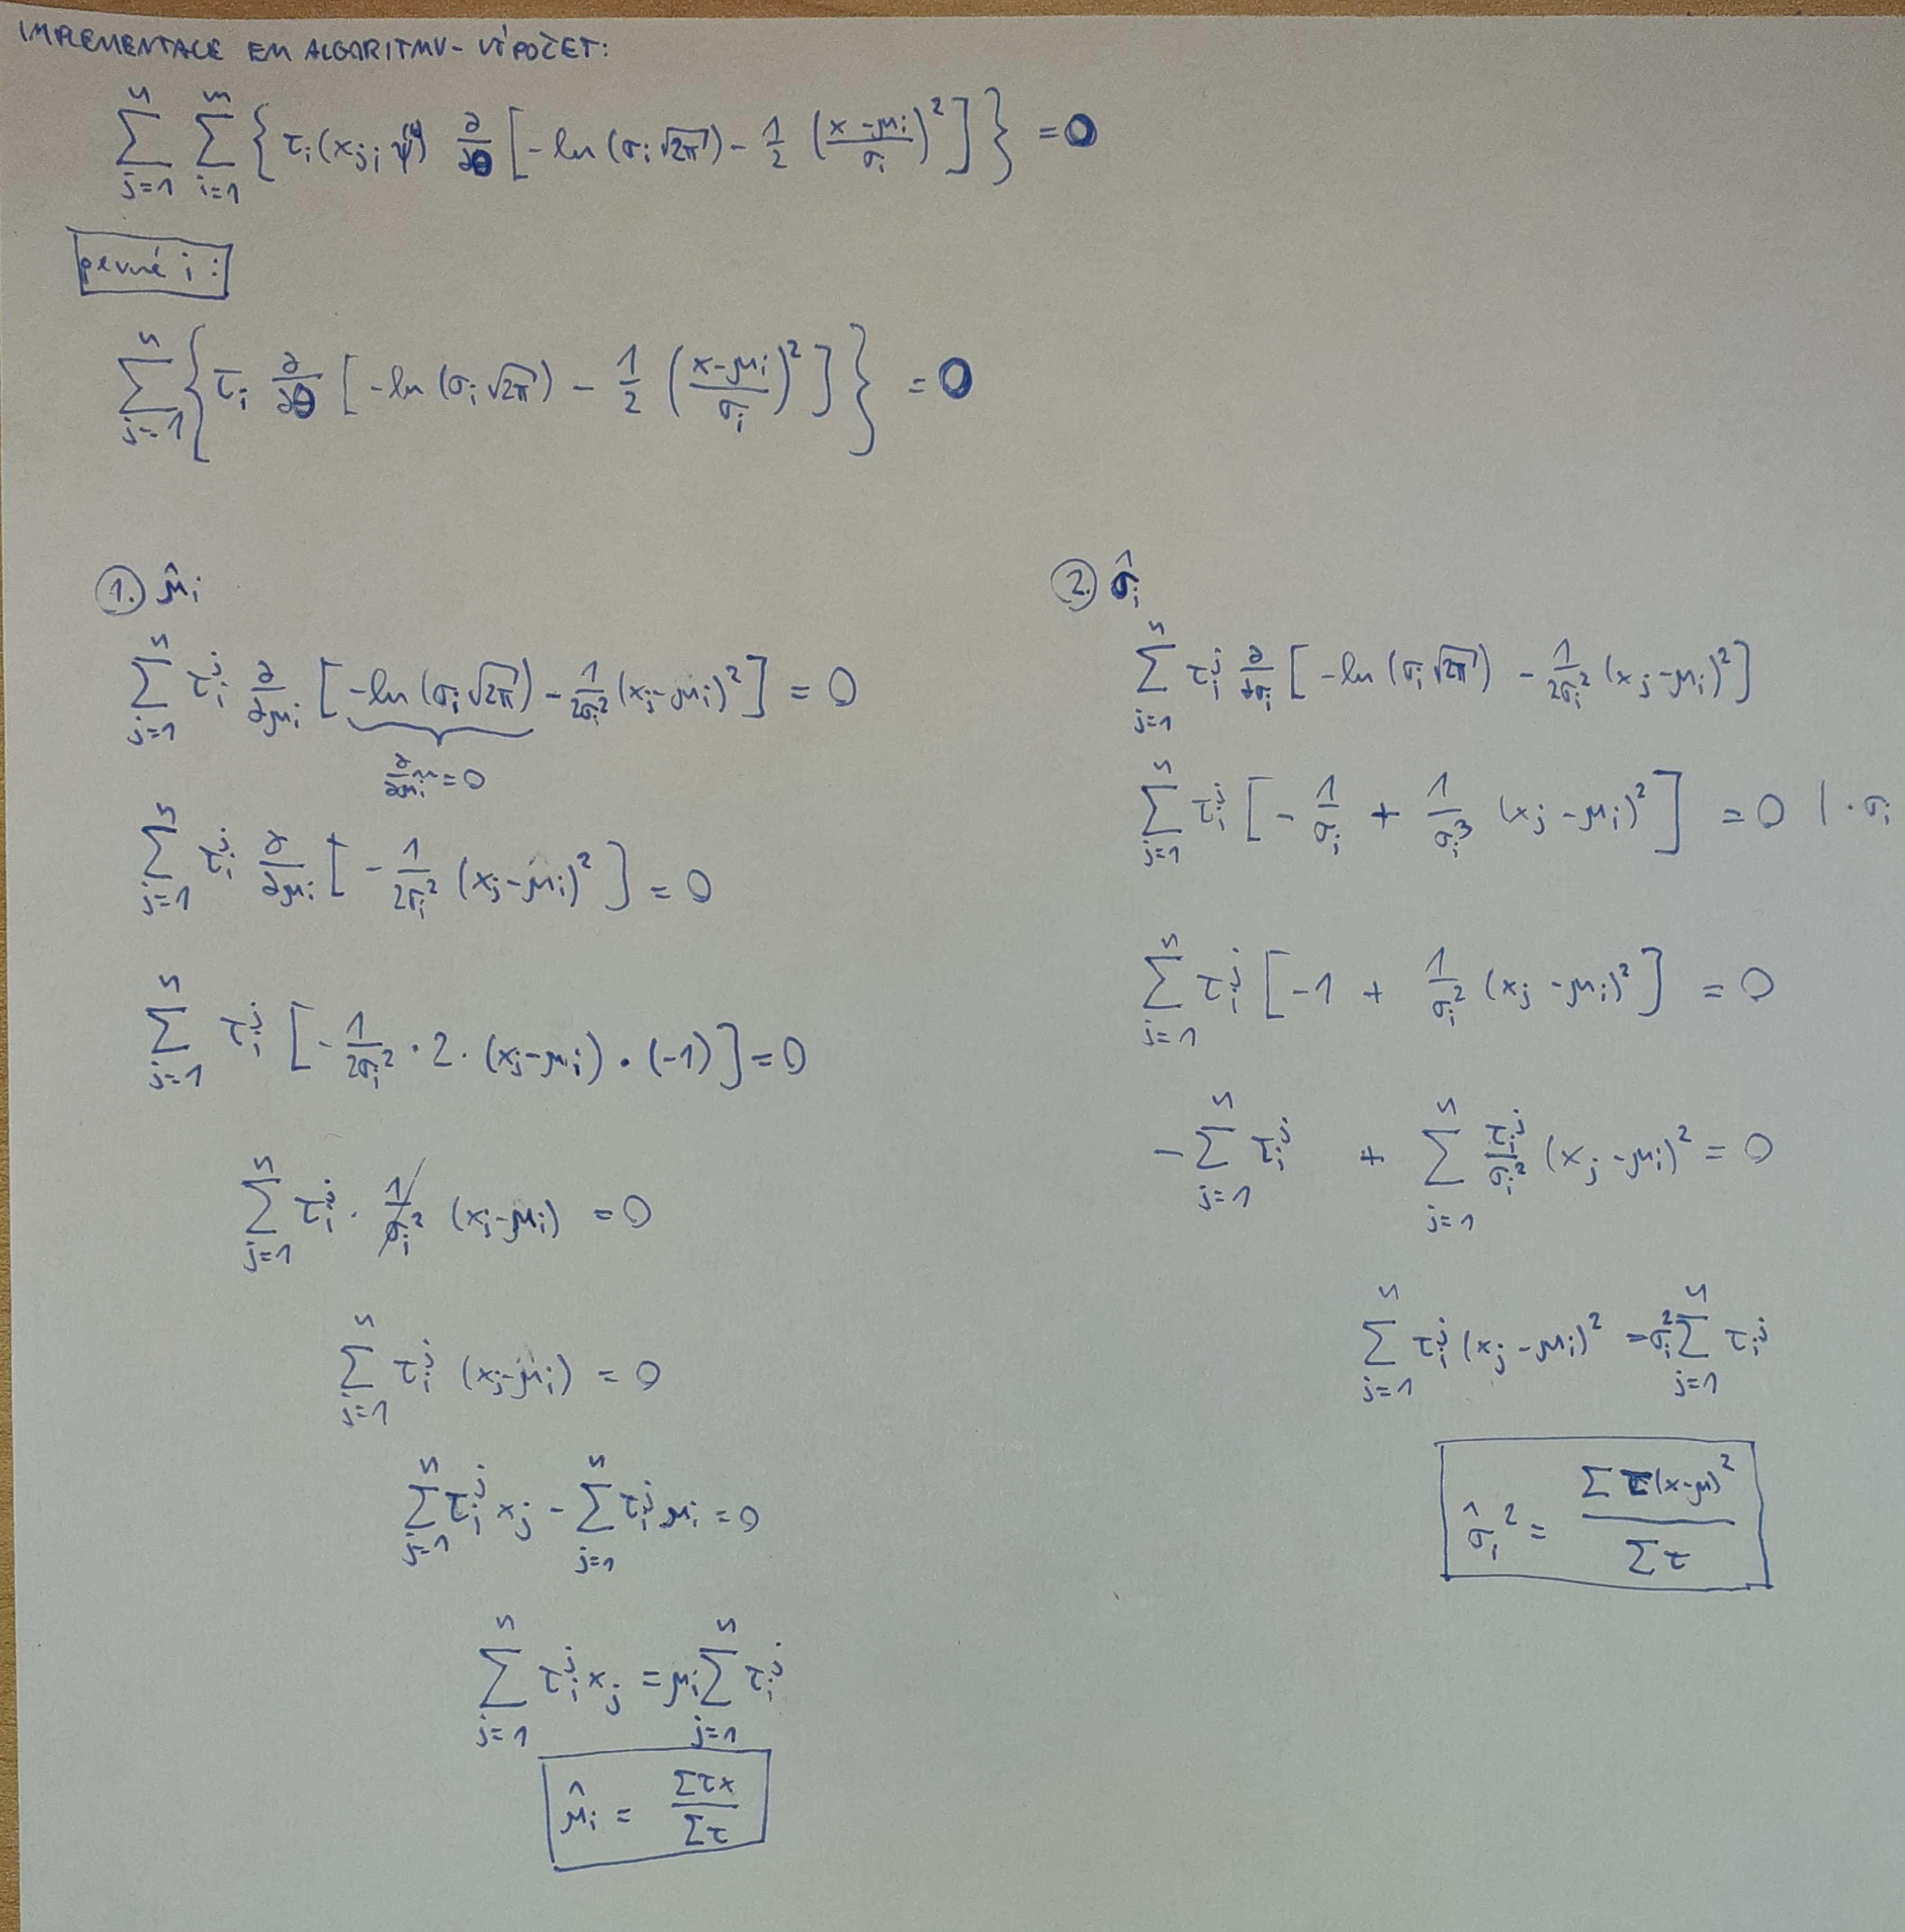 IMPLEMENTACE EM ALGORITMU - VÝPOČET:
∑_{j=1}^{n} ∑_{i=1}^{m} { τ_i(x_j; ψ^{(k)}) ∂/∂θ [ -ln(σ_i √2π) - 1/2 ((x-μ_i)/σ_i)^2 ] } = 0
pevné i:
∑_{j=1}^{n} { τ_i ∂/∂θ [ -ln(σ_i √2π) - 1/2 ((x-μ_i)/σ_i)^2 ] } = 0
1. μ̂_i
∑_{j=1}^{n} τ_i^j ∂/∂μ_i [ -ln(σ_i √2π) - 1/(2σ_i^2) (x_j-μ_i)^2 ] = 0
∂/∂μ_i = 0
∑_{j=1}^{n} τ_i^j ∂/∂μ_i [ - 1/(2σ_i^2) (x_j-μ_i)^2 ] = 0
∑_{j=1}^{n} τ_i^j [ - 1/(2σ_i^2) · 2 · (x_j-μ_i) · (-1) ] = 0
∑_{j=1}^{n} τ_i^j · 1/σ_i^2 (x_j-μ_i) = 0
∑_{j=1}^{n} τ_i^j (x_j-μ_i) = 0
∑_{j=1}^{n} τ_i^j x_j - ∑_{j=1}^{n} τ_i^j μ_i = 0
∑_{j=1}^{n} τ_i^j x_j = μ_i ∑_{j=1}^{n} τ_i^j
μ̂_i = ∑τx / ∑τ
2. σ̂_i
∑_{j=1}^{n} τ_i^j ∂/∂σ_i [ -ln(σ_i √2π) - 1/(2σ_i^2) (x_j-μ_i)^2 ]
∑_{j=1}^{n} τ_i^j [ - 1/σ_i + 1/σ_i^3 (x_j-μ_i)^2 ] = 0 | · σ_i
∑_{j=1}^{n} τ_i^j [ -1 + 1/σ_i^2 (x_j-μ_i)^2 ] = 0
- ∑_{j=1}^{n} τ_i^j + ∑_{j=1}^{n} τ_i^j/σ_i^2 (x_j-μ_i)^2 = 0
∑_{j=1}^{n} τ_i^j (x_j-μ_i)^2 = σ_i^2 ∑_{j=1}^{n} τ_i^j
σ̂_i^2 = ∑τ(x-μ)^2 / ∑τ